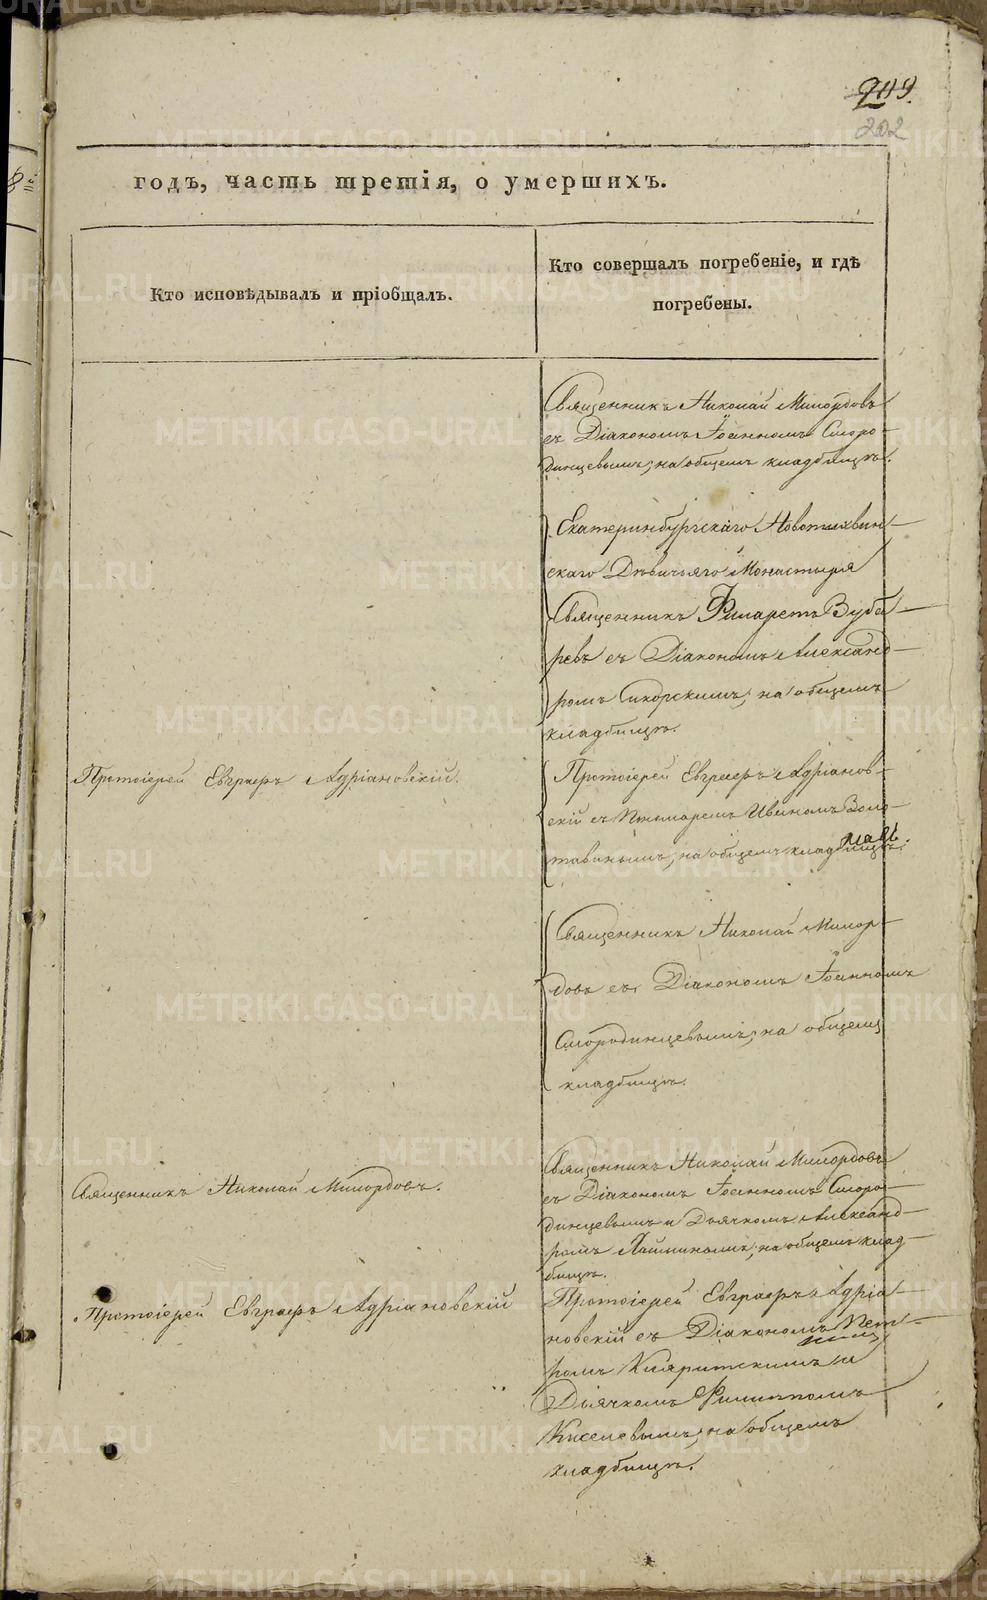 209.
202
годъ, часть третія, о умершихъ.
Кто исповѣдывалъ и пріобщалъ.
Кто совершалъ погребеніе, и гдѣ
погребены.
Священникъ Николай Милордовъ
съ Діакономъ Іоанномъ Сморо-
динцевымъ, на общемъ кладбищѣ.
Екатеринбургскаго Новотихвин-
скаго Дѣвичьяго Монастыря
Священникъ Филаретъ Зуба-
ревъ съ Діакономъ Александ-
ромъ Сикорскимъ, на общемъ
кладбищѣ.
Протоіерей Евграфъ Адріановскій.
Протоіерей Евграфъ Адріанов-
скій съ Пономаремъ Иваномъ Золо-
тавинымъ, на общемъ кладбищѣ.
Священникъ Николай Милор-
довъ съ Діакономъ Іоанномъ
Смородинцевымъ, на общемъ
кладбищѣ.
Священникъ Николай Милордовъ.
Священникъ Николай Милордовъ
съ Діакономъ Іоанномъ Сморо-
динцевымъ и Дьячкомъ Александ-
ромъ на общемъ клад-
бищѣ.
Протоіерей Евграфъ Адріановскій
Протоіерей Евграфъ Адріа-
новскій съ Діакономъ Пет-
ромъ и
Дьячкомъ Филиппомъ
Киселевымъ, на общемъ
кладбищѣ.
METRIKI.GASO-URAL.RU